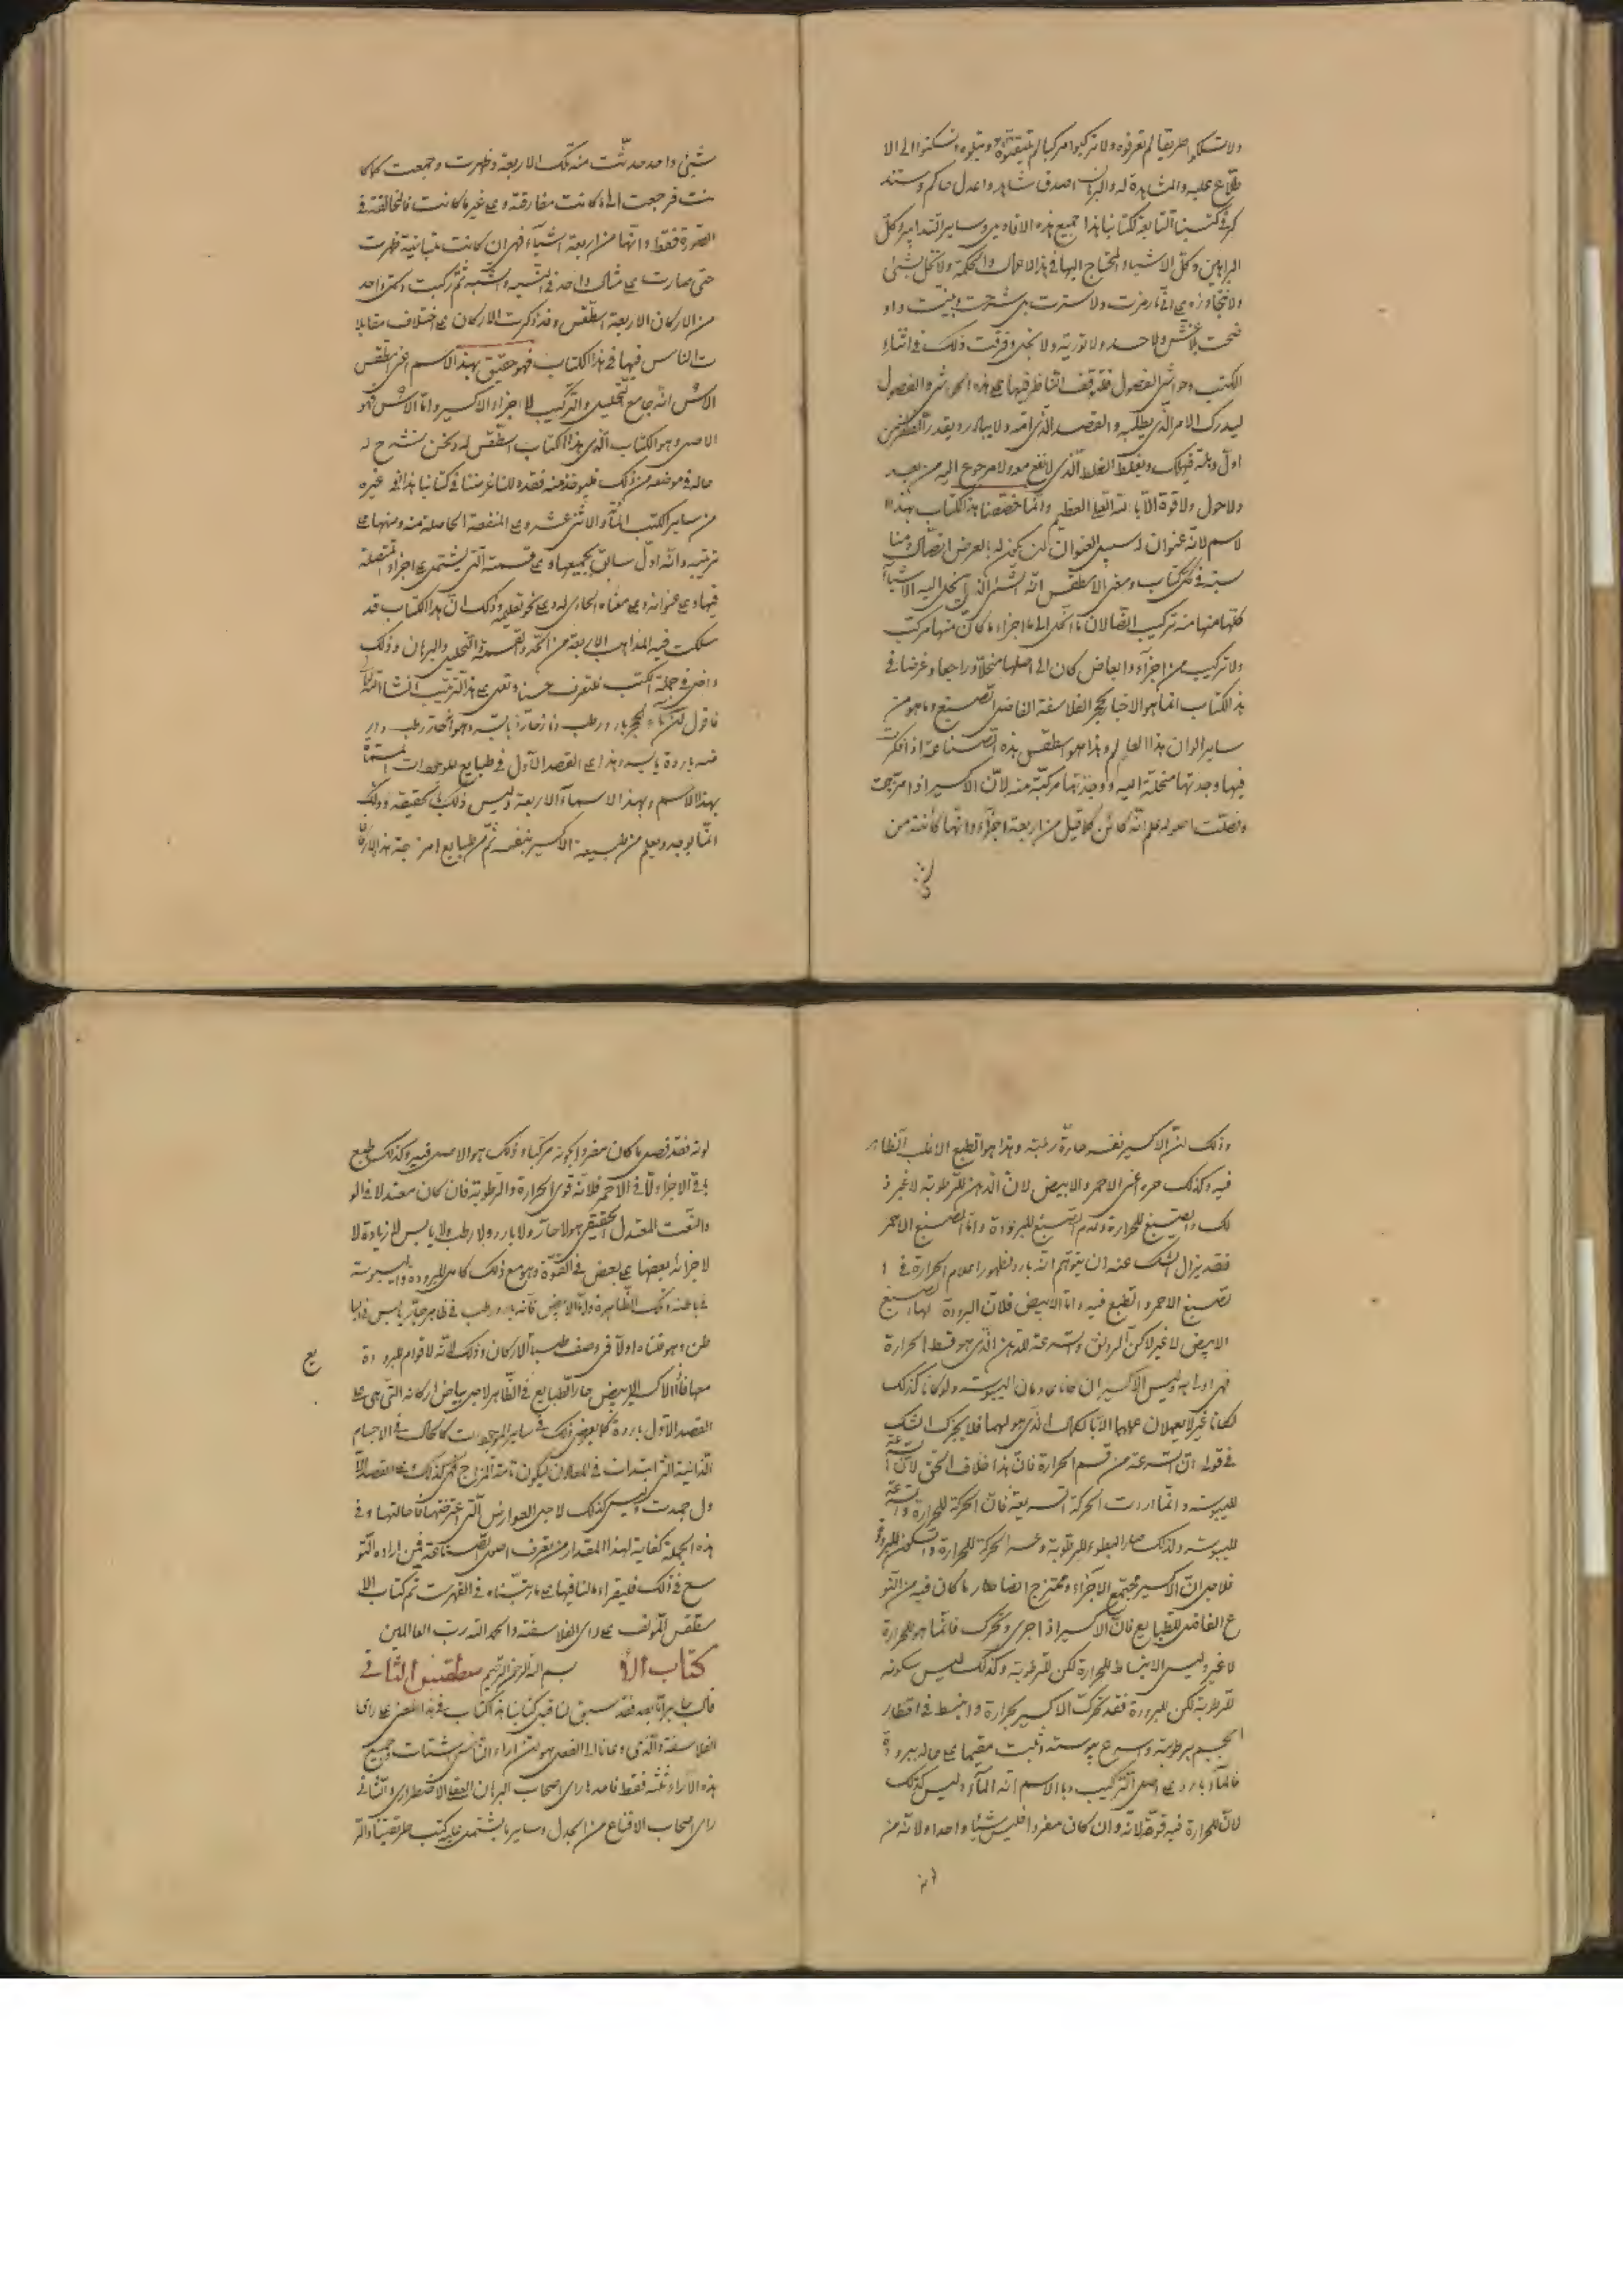 ولا تسلكوا طريقا لم تعرفوه ولا تركبوا مركبا لم تتيقنوه
طلاع عليه والمشاهدة له والبرهان اصدق شاهد واعدل حاكم وستذ
كر فى كتبنا التابعة لكتابنا هذا جميع هذه الاقاويل وساير التدابير وكل
البراهين وكل الاشياء المحتاج اليها فى هذه الاعمال والحكمة ولا تخل بشئ
ولا تتجاوزه رمزت ولا سترت بل شرحت وبينت واو
ضحت بلا غش ولا حسد ولا تورية ولا بخل وفرقت ذلك فى اثناء
الكتب وحواشى الفصول فقد يقف الناظر فيها على هذه الحواشى والفصول
ليدرك الامر الذى يطلبه والقصد الذى امه ولا يبادر ويقدر الظفر من
اول وهلة فيهلك ويغلط الغلط الذى لا ينفع معه ولا مرجوع اليه من بعد
ولا حول ولا قوة الا بالله العلى العظيم وانما خصصنا هذا الكتاب بهذا ا
لاسم لانه عنوان له وسبيل العنوان ان يكون له بالغرض اتصال ومنا
سبة فى كل كتاب ومعنى الاسطقس انه الشئ الذى ينحل اليه الاشياء
كلها منها منه تركيب اتصالان ما انحل الى اجزاء ما كان منها مركب
ولا تركيب من اجزاء وابعاض كان الى اصلها منحلا وراجعا وغرضنا فى
هذا الكتاب انما هو الاخبار بحجر الفلاسفة الفاضل الصبغ وما هو من
ساير الوان هذا العالم وهذا هو اسطقس هذه الصناعة اذا فكرت
فيها وجدتها منحلة اليه ووجدتها مركبة منه لان الاكسير اذا امتزجت
وفصلت اصوله علم انه كائن كما قيل من اربعة اجزاء وانها كائنة من
شئ واحد حدثت منه تلك الاربعة وظهرت وجمعت كما كا
نت فرجعت الى ما كانت مفارقته وهى غير ما كانت فالمخالفة فى
الصورة فقط وانها من اربعة اشياء فهى ان كانت متباينة ظهرت
حتى صارت على مثال واحد فى التشبيه والشبه ثم ركبت وكل واحد
من الاركان الاربعة اسطقس وقد ذكرت الاركان على اختلاف مقالا
ت الناس فيها فى هذا الكتاب فهو حقيق بهذا الاسم اعنى اسطقس
الاس انه جامع التحليل والتركيب لاجزاء الاكسير واما الاس فهو
الاصل وهو الكتاب الذى هذا الكتاب اسطقس له ونحن نشرح لـ
حاله فى موضعه من ذلك فليؤخذ منه فقصدنا غرضنا فى كتابنا هذا فى غيره
من ساير الكتب المأة والاثنى عشر وعلى المنفعة الحاصلة منه ومنها على
ترتيبه وانه اول سابق بجميعها وعلى قسمته التى يشتمل على اجزاء متصلة
فيها وعلى عنوانه وعلى معناه الحاوى له وعلى نحو تعليمه وذلك ان هذا الكتاب قد
سلكت فيه المذاهب الاربعة من الحد والقسمة والتحليل والبرهان وذلك
واضح فى جملة الكتب فلتعرف حسنا وتعمل على هذا الترتيب ان شاء الله تعالى
فاقول لكن ماء الحجر بارد رطب وناره حارة يابسة وهواؤه حار رطب وار
ضه باردة يابسة وهذا على القصد الاول فى طبايع الموجودات المسماة
بهذا الاسم وبهذا الاسماء الاربعة وليس ذلك بالحقيقة وذلك
انما يوجد ويعلم من طبيعة الاكسير نفسه ثم من طبايع امزجة هذه الاركان
وذلك لان الاكسير نفسه حارة رطبة وهذا هو الطبع الاغلب الظاهر
فيه وكذلك جزء اعنى الاحمر والابيض لان الدهن للرطوبة لا غير ذ
لك والصبغ للحرارة وعدم الصبغ للبرودة واما الصبغ الاحمر
فقد يزال الشك عنه ان يتوهم انه بارد لظهور اعلام الحرارة فى ا
لصبغ الاحمر والطبع فيه واما الابيض فلان البرودة لها الصبغ
الابيض لا غير لاكن الرونق والسرعة للدهن الذى هو قسط الحرارة
لكانا غير لا يعملان عملهما الا بالكمال الذى هو لهما فلا يحزنك الشك
فى قوله ان السرعة من قسم الحرارة فان هذا خلاف الحق لان السرعة
لليبوسة وانما اردت الحركة السريعة فان الحركة للحرارة والسرعة
لليبوسة ولذلك صار البطوء للرطوبة وعسر الحركة للحرارة والسكون للبرودة
فلاجل ان الاكسير مجتمع الاجزاء وممتزج ايضا صار ما كان فيه من النو
ع الفاضل للطبايع فان الاكسير اذا اجرى وتحرك فانما هو للحرارة
لا غير وليس الانبساط للحرارة لكن للرطوبة وكذلك ليس سكونه
للرطوبة لكن للبرودة فقد تحرك الاكسير بحرارة وانبسط فى اقطار
الجسم برطوبة واسرع بيبوسة وثبت مقيما على حاله ببرودة
فالماء بارد على اصل التركيب وبالاسم انه الماء وليس كذلك
لان للحرارة فيه قوة لانه وان كان مفردا فليس شيئا واحدا ولانه من
لونه فقد فصل ما كان مفردا بكونه مركبا وذلك هو الاصل فيه وكذلك طبع
باقى الاجزاء لا فى الاحمر فلانه قوى الحرارة والرطوبة فان كان معتدلا فى اللو
والنعت المعتدل الحقيقى هو لا حار ولا بارد ولا رطب ولا يابس اى لا زيادة لا
لاجزائه بعضها على بعض فى القوة وهو مع ذلك كامل البرودة واليبوسة
فى باطنه وتلك الظاهرة واما الابيض فانه بارد رطب فى ظاهره حار يابس فى با
طن وهو ضدناه اولا فى وصف طبيا الاركان وذلك لانه لا قوام للبرودة
مع
معها فاما الاكسير الابيض حار الطبايع فى الظاهر لاجل بياض اركانه التى هى على
القصد الاول باردة كما يعرض ذلك فى ساير الموجودات كالحال فى الاجسام
الذائبة التى ابتدات فى المعادن ليكون تامة المزاج فهى كذلك وعلى القصد الا
ول جمدت وليس كذلك لاجل العوارض التى اعترضتها فاحالتها وفى
هذه الجملة كفاية لهذا المقدار من تعرف اصول الصناعة فمن اراد التو
سع فى ذلك فليقراء ما لنا فيها على ما رتبناه فى الفهرست تم كتاب الا
سطقس المؤلف على راى الفلاسفة والحمد لله رب العالمين
كتاب الا بسم الله الرحمن الرحيم سطقس الثانى
قال جابر اما بعد فقد سبق لنا قبل كتابنا هذا كتاب فى هذا المعنى على راى
الفلاسفة والذى دعانا الى الفصل هو لان اراء الناس اشتات وجميع
هذه الآراء ثلثة فقط فاحدها راى اصحاب البرهان العقلى الاضطرارى والثانى
راى اصحاب الاقناع من الجدل وساير ما يشتمل عليه كتب طريقتنا والثـ